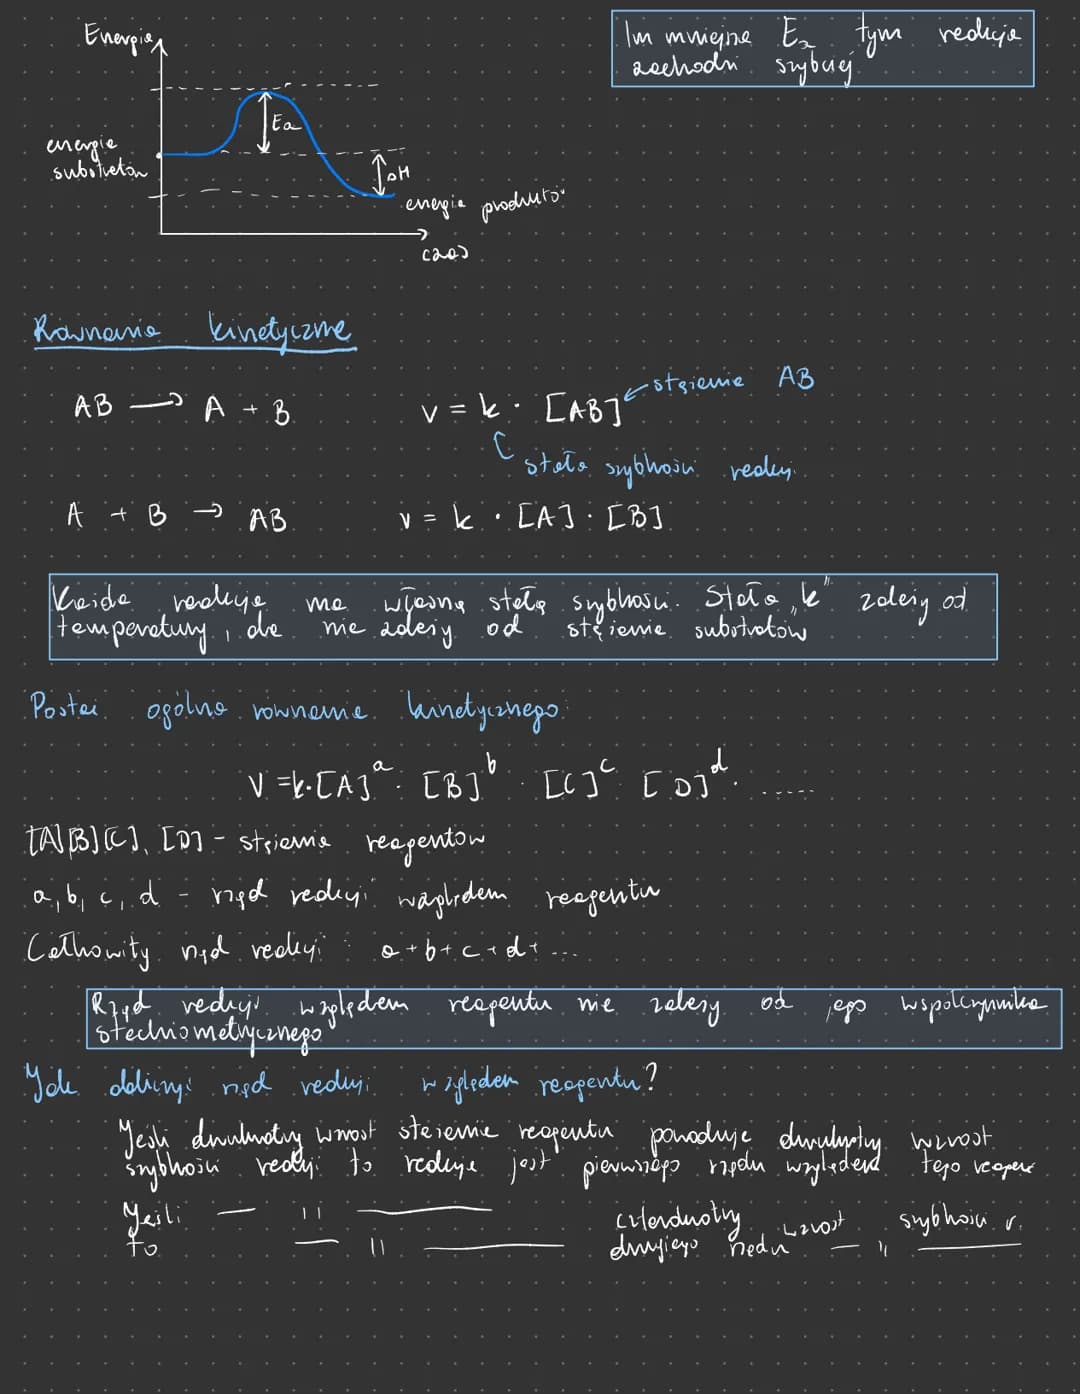 Energia
Im mniejsza Ea tym reakcja
zachodzi szybciej
Ea
energia
substratów
ΔH
energia produktów
czas
Równania kinetyczne
AB → A + B
v = k · [AB]
stężenie AB
stała szybkości reakcji
A + B → AB
v = k · [A] · [B]
Każda reakcja ma własną stałą szybkości. Stała „k" zależy od
temperatury, ale nie zależy od stężenia substratów
Postać ogólna równania kinetycznego:
V = k·[A]ᵃ · [B]ᵇ · [C]ᶜ [D]ᵈ· .....
[A][B][C], [D] - stężenia reagentów
a, b, c, d - rząd reakcji względem reagentu
Całkowity rząd reakcji: a + b + c + d + ...
Rząd reakcji względem reagentu nie zależy od jego współczynnika
stechiometrycznego
Jak obliczyć rząd reakcji względem reagentu?
Jeśli dwukrotny wzrost stężenia reagentu powoduje dwukrotny wzrost
szybkości reakcji to reakcja jest pierwszego rzędu względem tego reagen
Jeśli — || —— czterokrotny wzrost szybkości r.
to — || —— drugiego rzędu — || ——